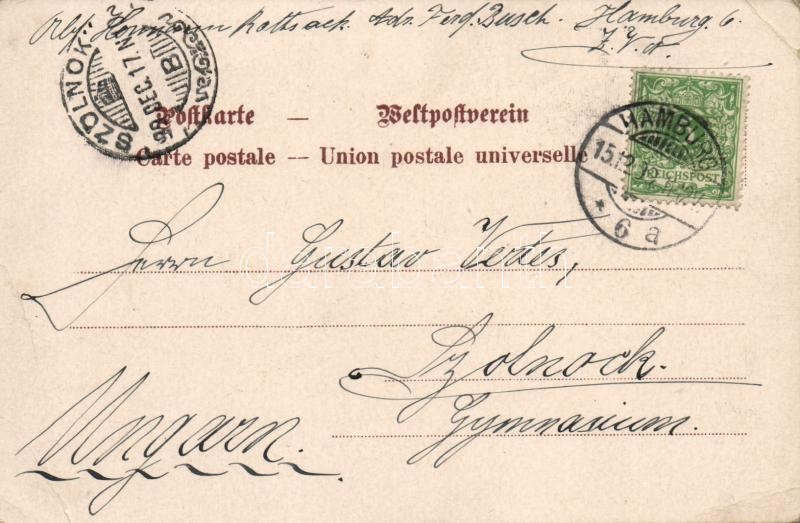 Hermann Rottsack. Adr. Ferd. Busch. Hamburg 6.
Postkarte — Weltpostverein
Carte postale -- Union postale universelle
SZOLNOK
98 DEC. 17 N
B
HAMBURG
15.12.
* 6 a
REICHSPOST
Herrn Gustav Vertes,
Szolnock.
Gymnasium.
Ungarn.
darabanth